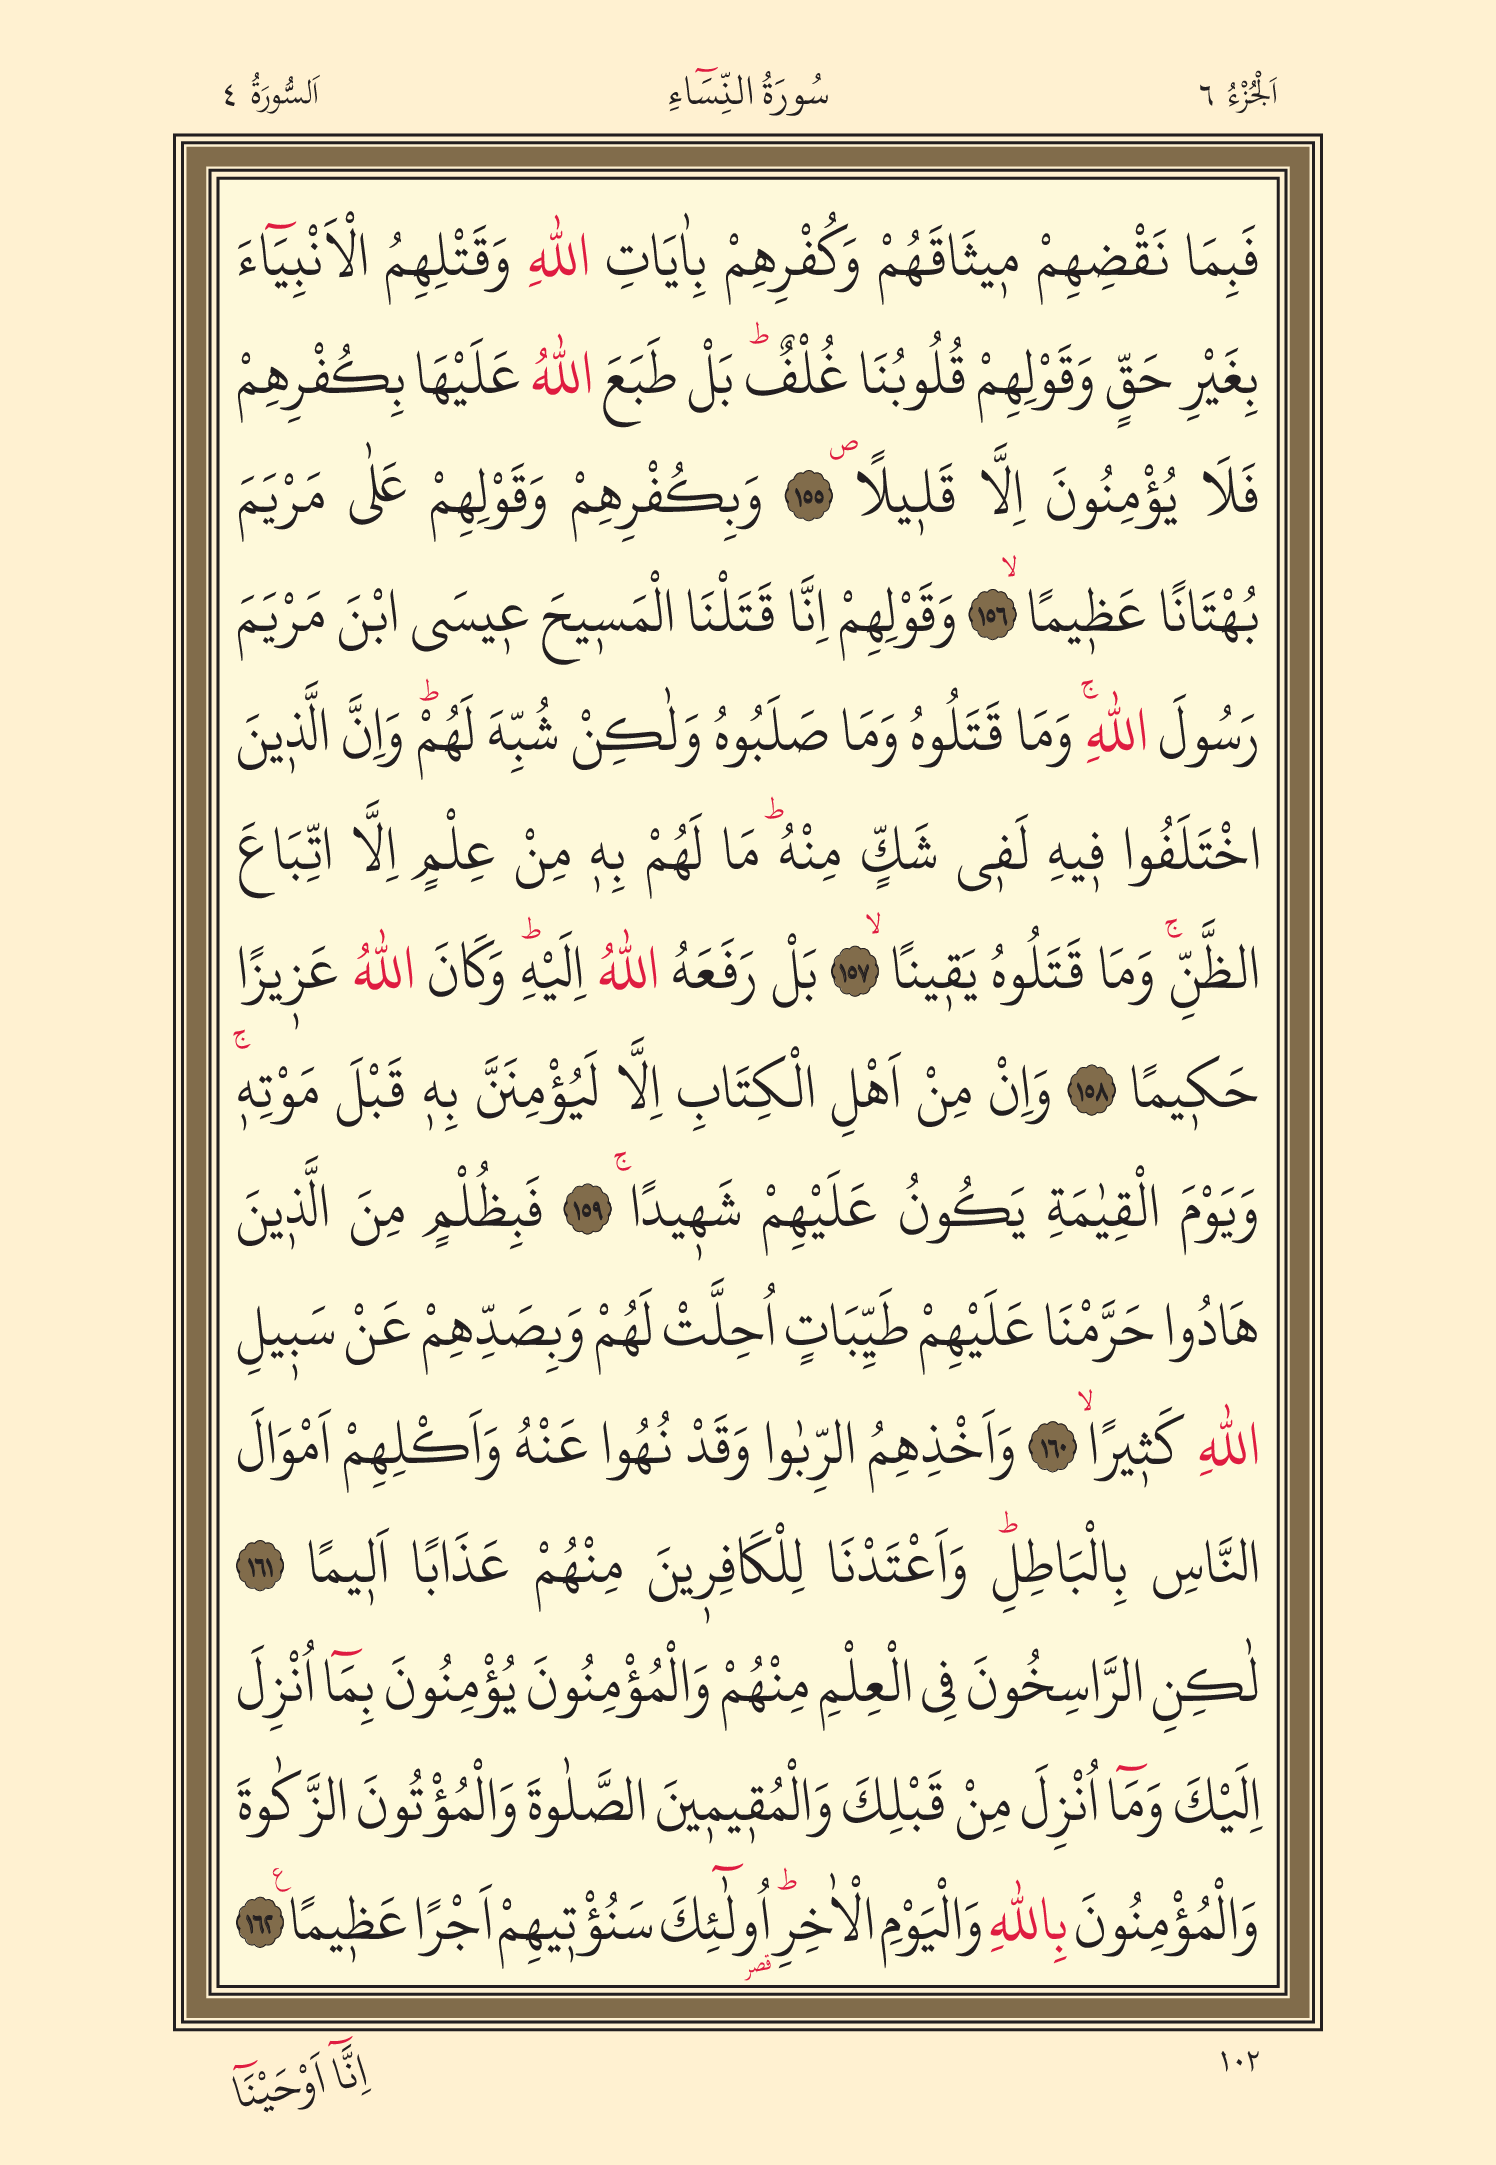 اَلْجُزْءُ ٦
سُورَةُ النِّسَٓاءِ
اَلسُّورَةُ ٤
فَبِمَا نَقْضِهِمْ م۪يثَاقَهُمْ وَكُفْرِهِمْ بِاٰيَاتِ اللّٰهِ وَقَتْلِهِمُ الْاَنْبِيَٓاءَ
بِغَيْرِ حَقٍّ وَقَوْلِهِمْ قُلُوبُنَا غُلْفٌۜ بَلْ طَبَعَ اللّٰهُ عَلَيْهَا بِكُفْرِهِمْ
فَلَا يُؤْمِنُونَ اِلَّا قَل۪يلًاۖ ﴿١٥٥﴾ وَبِكُفْرِهِمْ وَقَوْلِهِمْ عَلٰى مَرْيَمَ
بُهْتَانًا عَظ۪يمًاۙ ﴿١٥٦﴾ وَقَوْلِهِمْ اِنَّا قَتَلْنَا الْمَس۪يحَ ع۪يسَى ابْنَ مَرْيَمَ
رَسُولَ اللّٰهِۚ وَمَا قَتَلُوهُ وَمَا صَلَبُوهُ وَلٰكِنْ شُبِّهَ لَهُمْۜ وَاِنَّ الَّذ۪ينَ
اخْتَلَفُوا ف۪يهِ لَف۪ى شَكٍّ مِنْهُۜ مَا لَهُمْ بِه۪ مِنْ عِلْمٍ اِلَّا اتِّبَاعَ
الظَّنِّۚ وَمَا قَتَلُوهُ يَق۪ينًاۙ ﴿١٥٧﴾ بَلْ رَفَعَهُ اللّٰهُ اِلَيْهِۜ وَكَانَ اللّٰهُ عَز۪يزًا
حَك۪يمًا ﴿١٥٨﴾ وَاِنْ مِنْ اَهْلِ الْكِتَابِ اِلَّا لَيُؤْمِنَنَّ بِه۪ قَبْلَ مَوْتِه۪ۚ
وَيَوْمَ الْقِيٰمَةِ يَكُونُ عَلَيْهِمْ شَه۪يدًاۚ ﴿١٥٩﴾ فَبِظُلْمٍ مِنَ الَّذ۪ينَ
هَادُوا حَرَّمْنَا عَلَيْهِمْ طَيِّبَاتٍ اُحِلَّتْ لَهُمْ وَبِصَدِّهِمْ عَنْ سَب۪يلِ
اللّٰهِ كَث۪يرًاۙ ﴿١٦٠﴾ وَاَخْذِهِمُ الرِّبٰوا وَقَدْ نُهُوا عَنْهُ وَاَكْلِهِمْ اَمْوَالَ
النَّاسِ بِالْبَاطِلِۜ وَاَعْتَدْنَا لِلْكَافِر۪ينَ مِنْهُمْ عَذَابًا اَل۪يمًا ﴿١٦١﴾
لٰكِنِ الرَّاسِخُونَ فِى الْعِلْمِ مِنْهُمْ وَالْمُؤْمِنُونَ يُؤْمِنُونَ بِمَٓا اُنْزِلَ
اِلَيْكَ وَمَٓا اُنْزِلَ مِنْ قَبْلِكَ وَالْمُق۪يم۪ينَ الصَّلٰوةَ وَالْمُؤْتُونَ الزَّكٰوةَ
وَالْمُؤْمِنُونَ بِاللّٰهِ وَالْيَوْمِ الْاٰخِرِۜ اُولٰٓئِكَ سَنُؤْت۪يهِمْ اَجْرًا عَظ۪يمًا ع ﴿١٦٢﴾
قصر
١٠٢
اِنَّٓا اَوْحَيْنَٓا